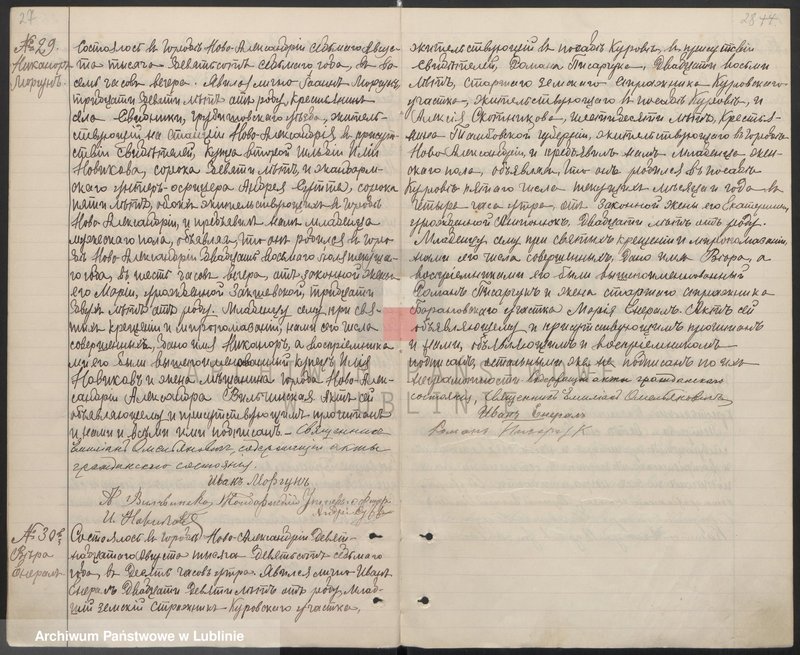 27
№ 29.
Никаноръ
Моргунъ.
Состоялось въ городѣ Ново-Александріи седьмого Авгу-
ста тысяча девятьсотъ седьмого года, въ во-
семь часовъ вечера. Явился лично Іоаннъ Моргунъ,
тридцати девяти лѣтъ отъ роду, крестьянинъ
села уѣзда, житель-
ствующій на станціи Ново-Александрія въ присут-
ствіи свидѣтелей, купца второй гильдіи Иліи
Новикова, сорока девяти лѣтъ и жандарм-
скаго унтеръ-офицера Андрея сорока
пяти лѣтъ, обоихъ жительствующихъ въ городѣ
Ново-Александріи, и предъявилъ намъ младенца
мужескаго пола, объявляя, что онъ родился въ горо-
дѣ Ново-Александріи двадцать восьмого Іюля текуща-
го года, въ шесть часовъ вечера, отъ законной жены
его Маріи, урожденной тридцати
двухъ лѣтъ отъ роду. Младенцу сему при свя-
томъ крещеніи и миропомазаніи, нами сего числа
совершенныхъ, дано имя Никаноръ, а воспріемника-
ми его были вышепоименованный купецъ Илія
Новиковъ и жена мѣщанина города Ново-Алек-
сандріи Александра Актъ сей
объявляющему и присутствующимъ прочитанъ
и нами и всѣми ими подписанъ. Священникъ
содержащій акты
гражданскаго состоянія.
Иванъ Моргунъ
А. Жандармскій Унтеръ-офицеръ
Андрей
И. Новиковъ
№ 30й
Вѣра
Енералъ
Состоялось въ городѣ Ново-Александріи девят-
надцатаго Августа тысяча девятьсотъ седьмого
года, въ десять часовъ утра. Явился лично Иванъ
Енералъ двадцати девяти лѣтъ отъ роду, млад-
шій земскій стражникъ Куровскаго участка,
28 44
жительствующій въ посадѣ Куровѣ, въ присутствіи
свидѣтелей, Романа Писарчука, двадцати восьми
лѣтъ, старшаго земскаго стражника Куровскаго
участка, жительствующаго въ посадѣ Куровѣ, и
Алексія шестидесяти лѣтъ, крестья-
нина Тамбовской губерніи, жительствующаго въ городѣ
Ново-Александріи, и предъявилъ намъ младенца жен-
скаго пола, объявляя, что онъ родился въ посадѣ
Куровѣ пятаго числа текущихъ мѣсяца и года, въ
четыре часа утра, отъ законной жены его Екатерины,
урожденной двадцати лѣтъ отъ роду.
Младенцу сему при святомъ крещеніи и миропомазаніи,
нами сего числа совершенныхъ, дано имя Вѣра, а
воспріемниками его были вышепоименованный
Романъ Писарчукъ и жена старшаго стражника
участка Марія Енералъ. Актъ сей
объявляющему и присутствующимъ прочитанъ
и нами, объявляющимъ и воспріемникомъ
подписанъ, остальными же не подписанъ по ихъ
неграмотности. Содержащій акты гражданскаго
состоянія, Священникъ
Иванъ Енералъ
Романъ Писарчук
ARCHIWUM PAŃSTWOWE
W LUBLINIE
Archiwum Państwowe w Lublinie